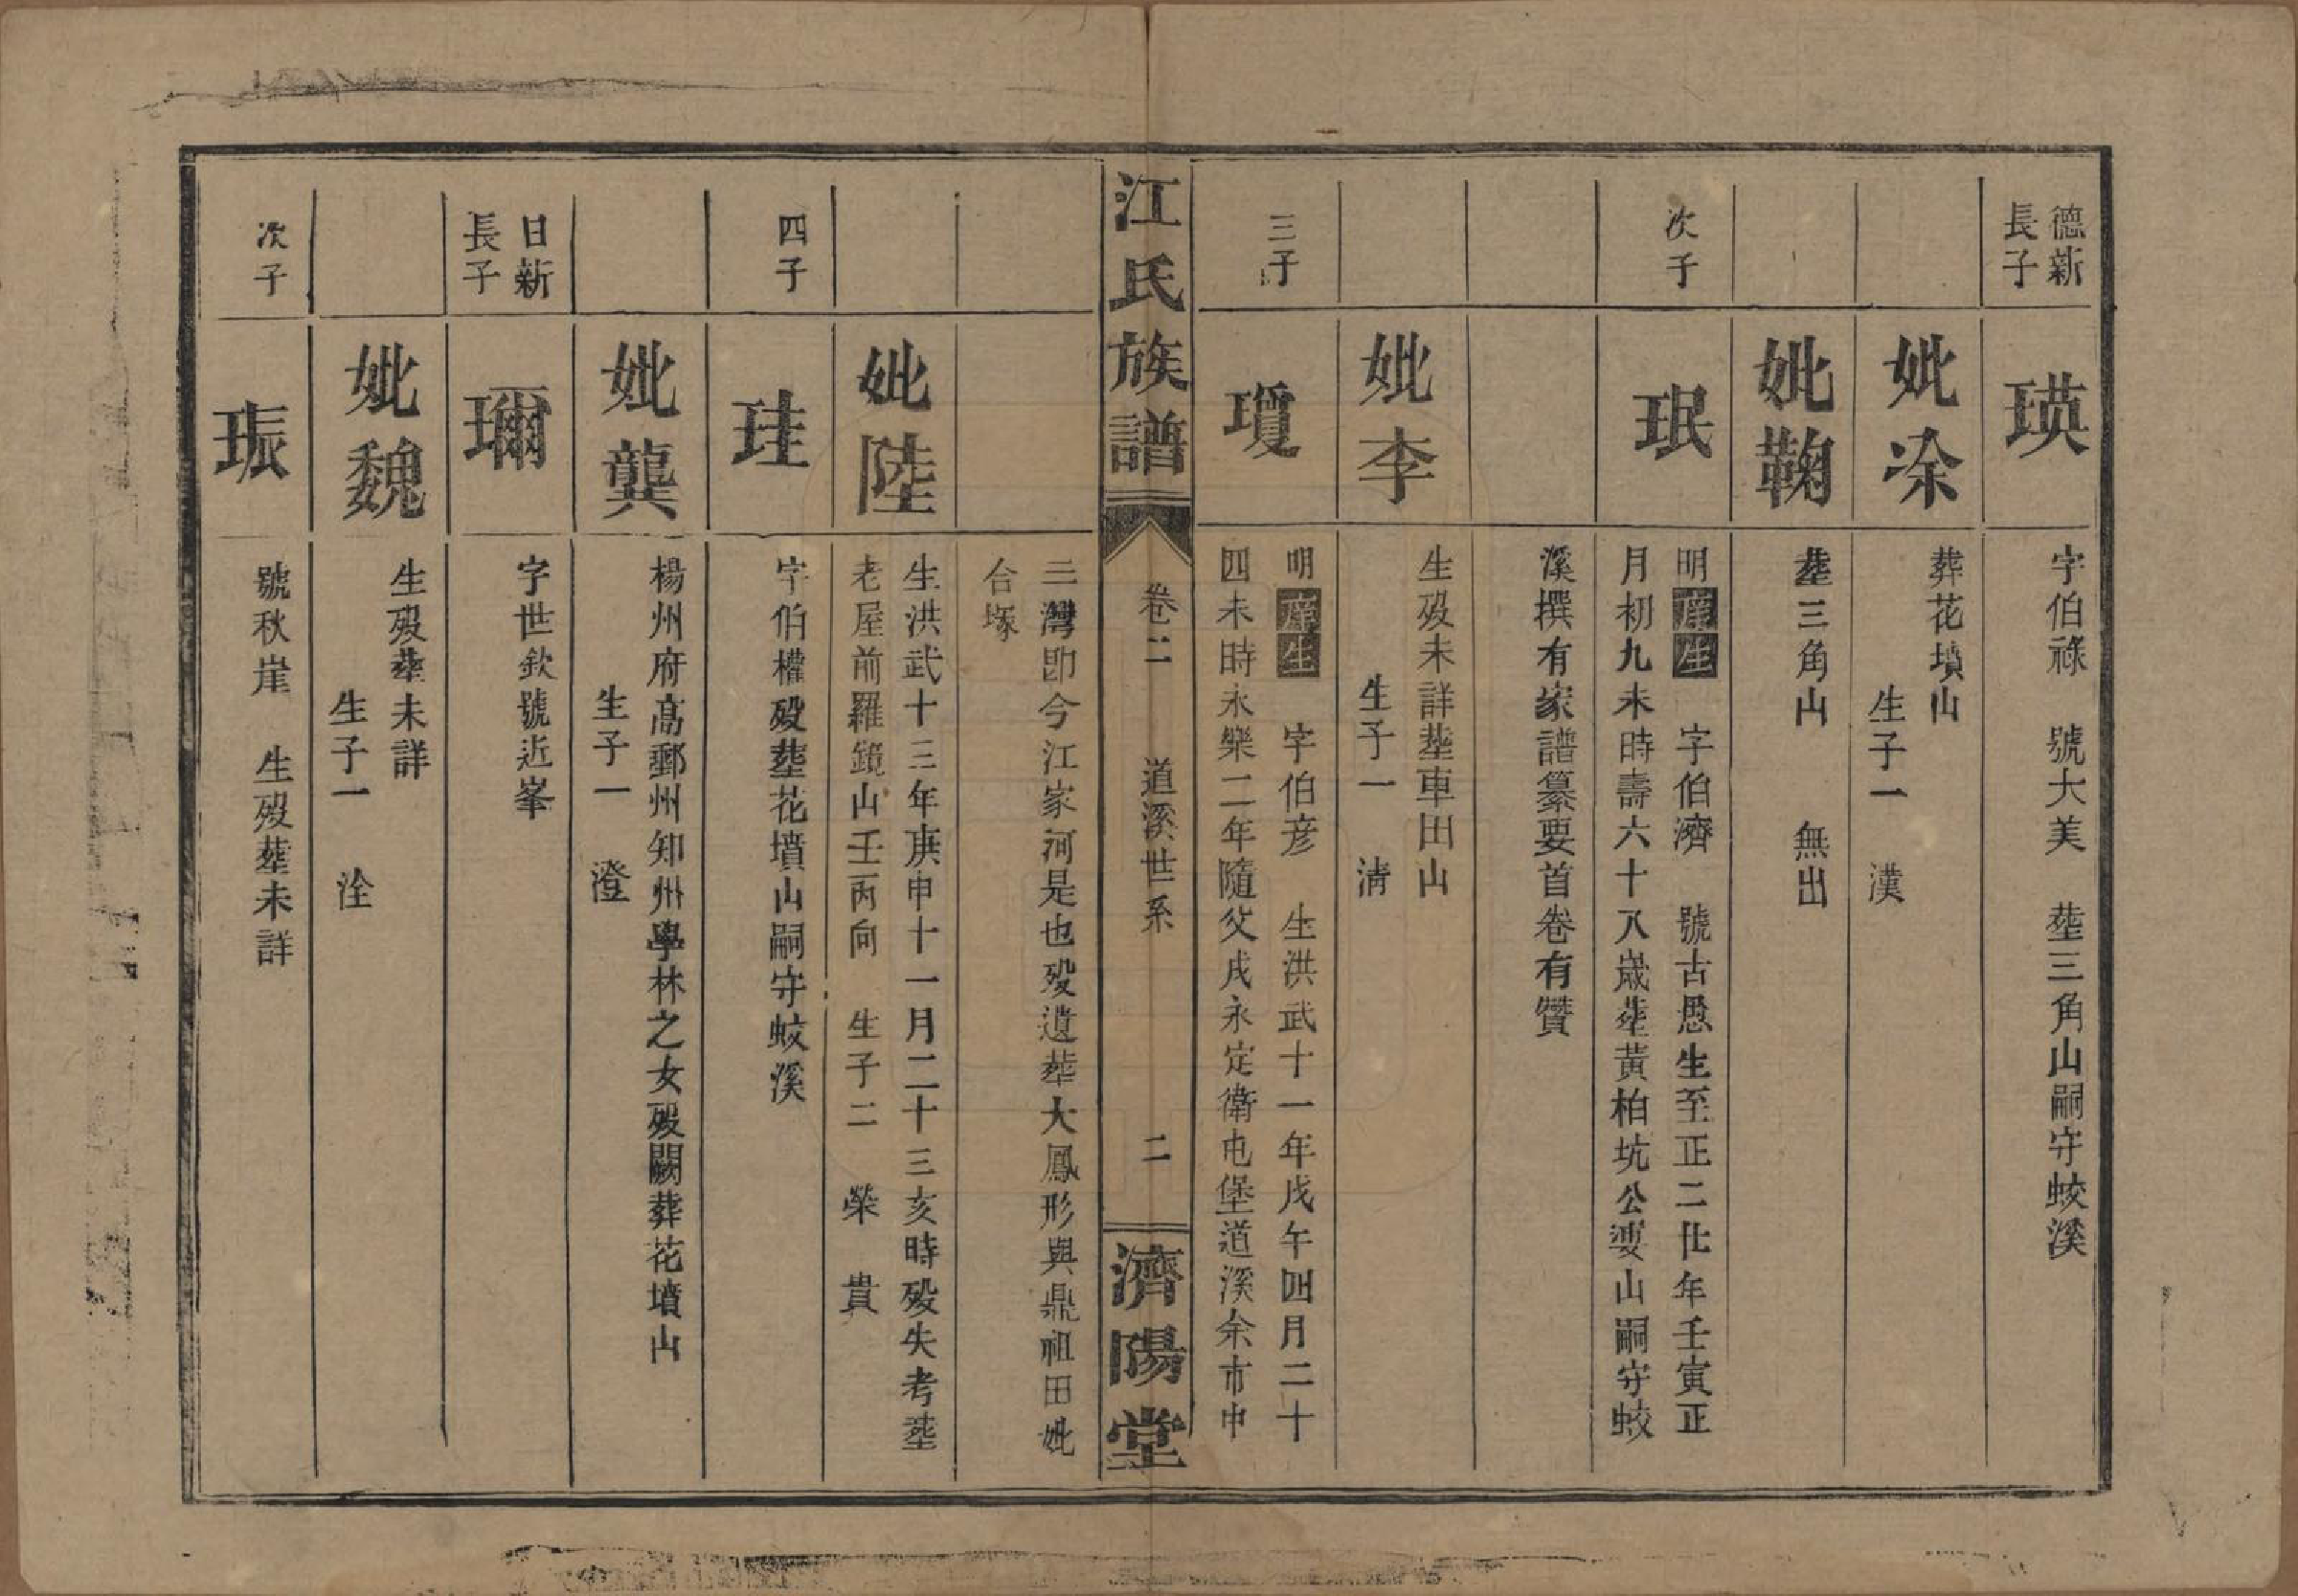 德新
長子
瑛
字伯祿 號大美 塟三角山嗣守蛟溪
妣凃
葬花墳山
生子一 漢
妣鞠
塟三角山 無出
次子
珉
明庠生 字伯濟 號古愚生至正二廿年壬寅正
月初九未時壽六十八歲塟黃柏坑公婆山嗣守蛟
溪撰有家譜纂要首卷有贊
妣李
生歿未詳塟車田山
生子一 清
三子
瓊
明庠生 字伯彥 生洪武十一年戊午四月二十
四未時永樂二年隨父戍永定衛屯堡道溪余市中
江氏族譜
卷二 道溪世系 二
濟陽堂
三灣卽今江家河是也歿遺塟大鳳形與鼎祖田妣
合塚
妣陸
生洪武十三年庚申十一月二十三亥時歿失考塟
老屋前羅鏡山壬丙向 生子二 榮 貴
四子
珪
字伯權歿塟花墳山嗣守蛟溪
妣龔
楊州府高郵州知州學林之女歿闕葬花墳山
生子一 澄
日新
長子
璽
字世欽號近峯
妣魏
生歿塟未詳
生子一 洤
次子
珢
號秋崖 生歿塟未詳